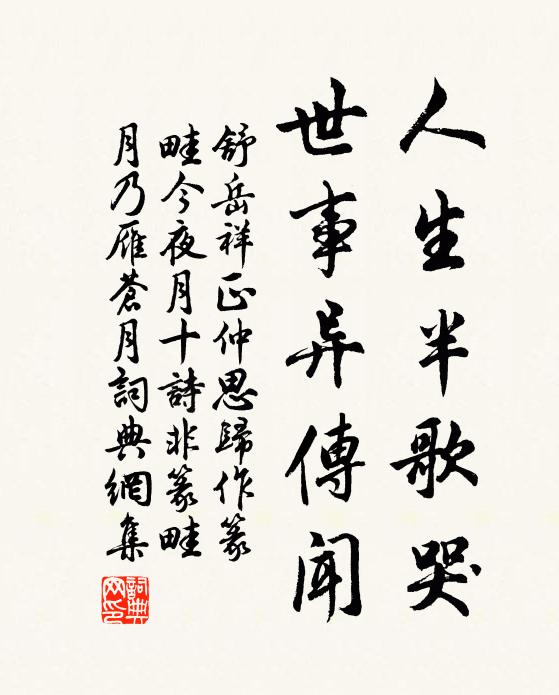 人生半歌哭
世事异傳聞
舒岳祥正仲思歸作篆
畦今夜月十詩非篆畦
月乃雁蒼月詞典網集
詞典網印